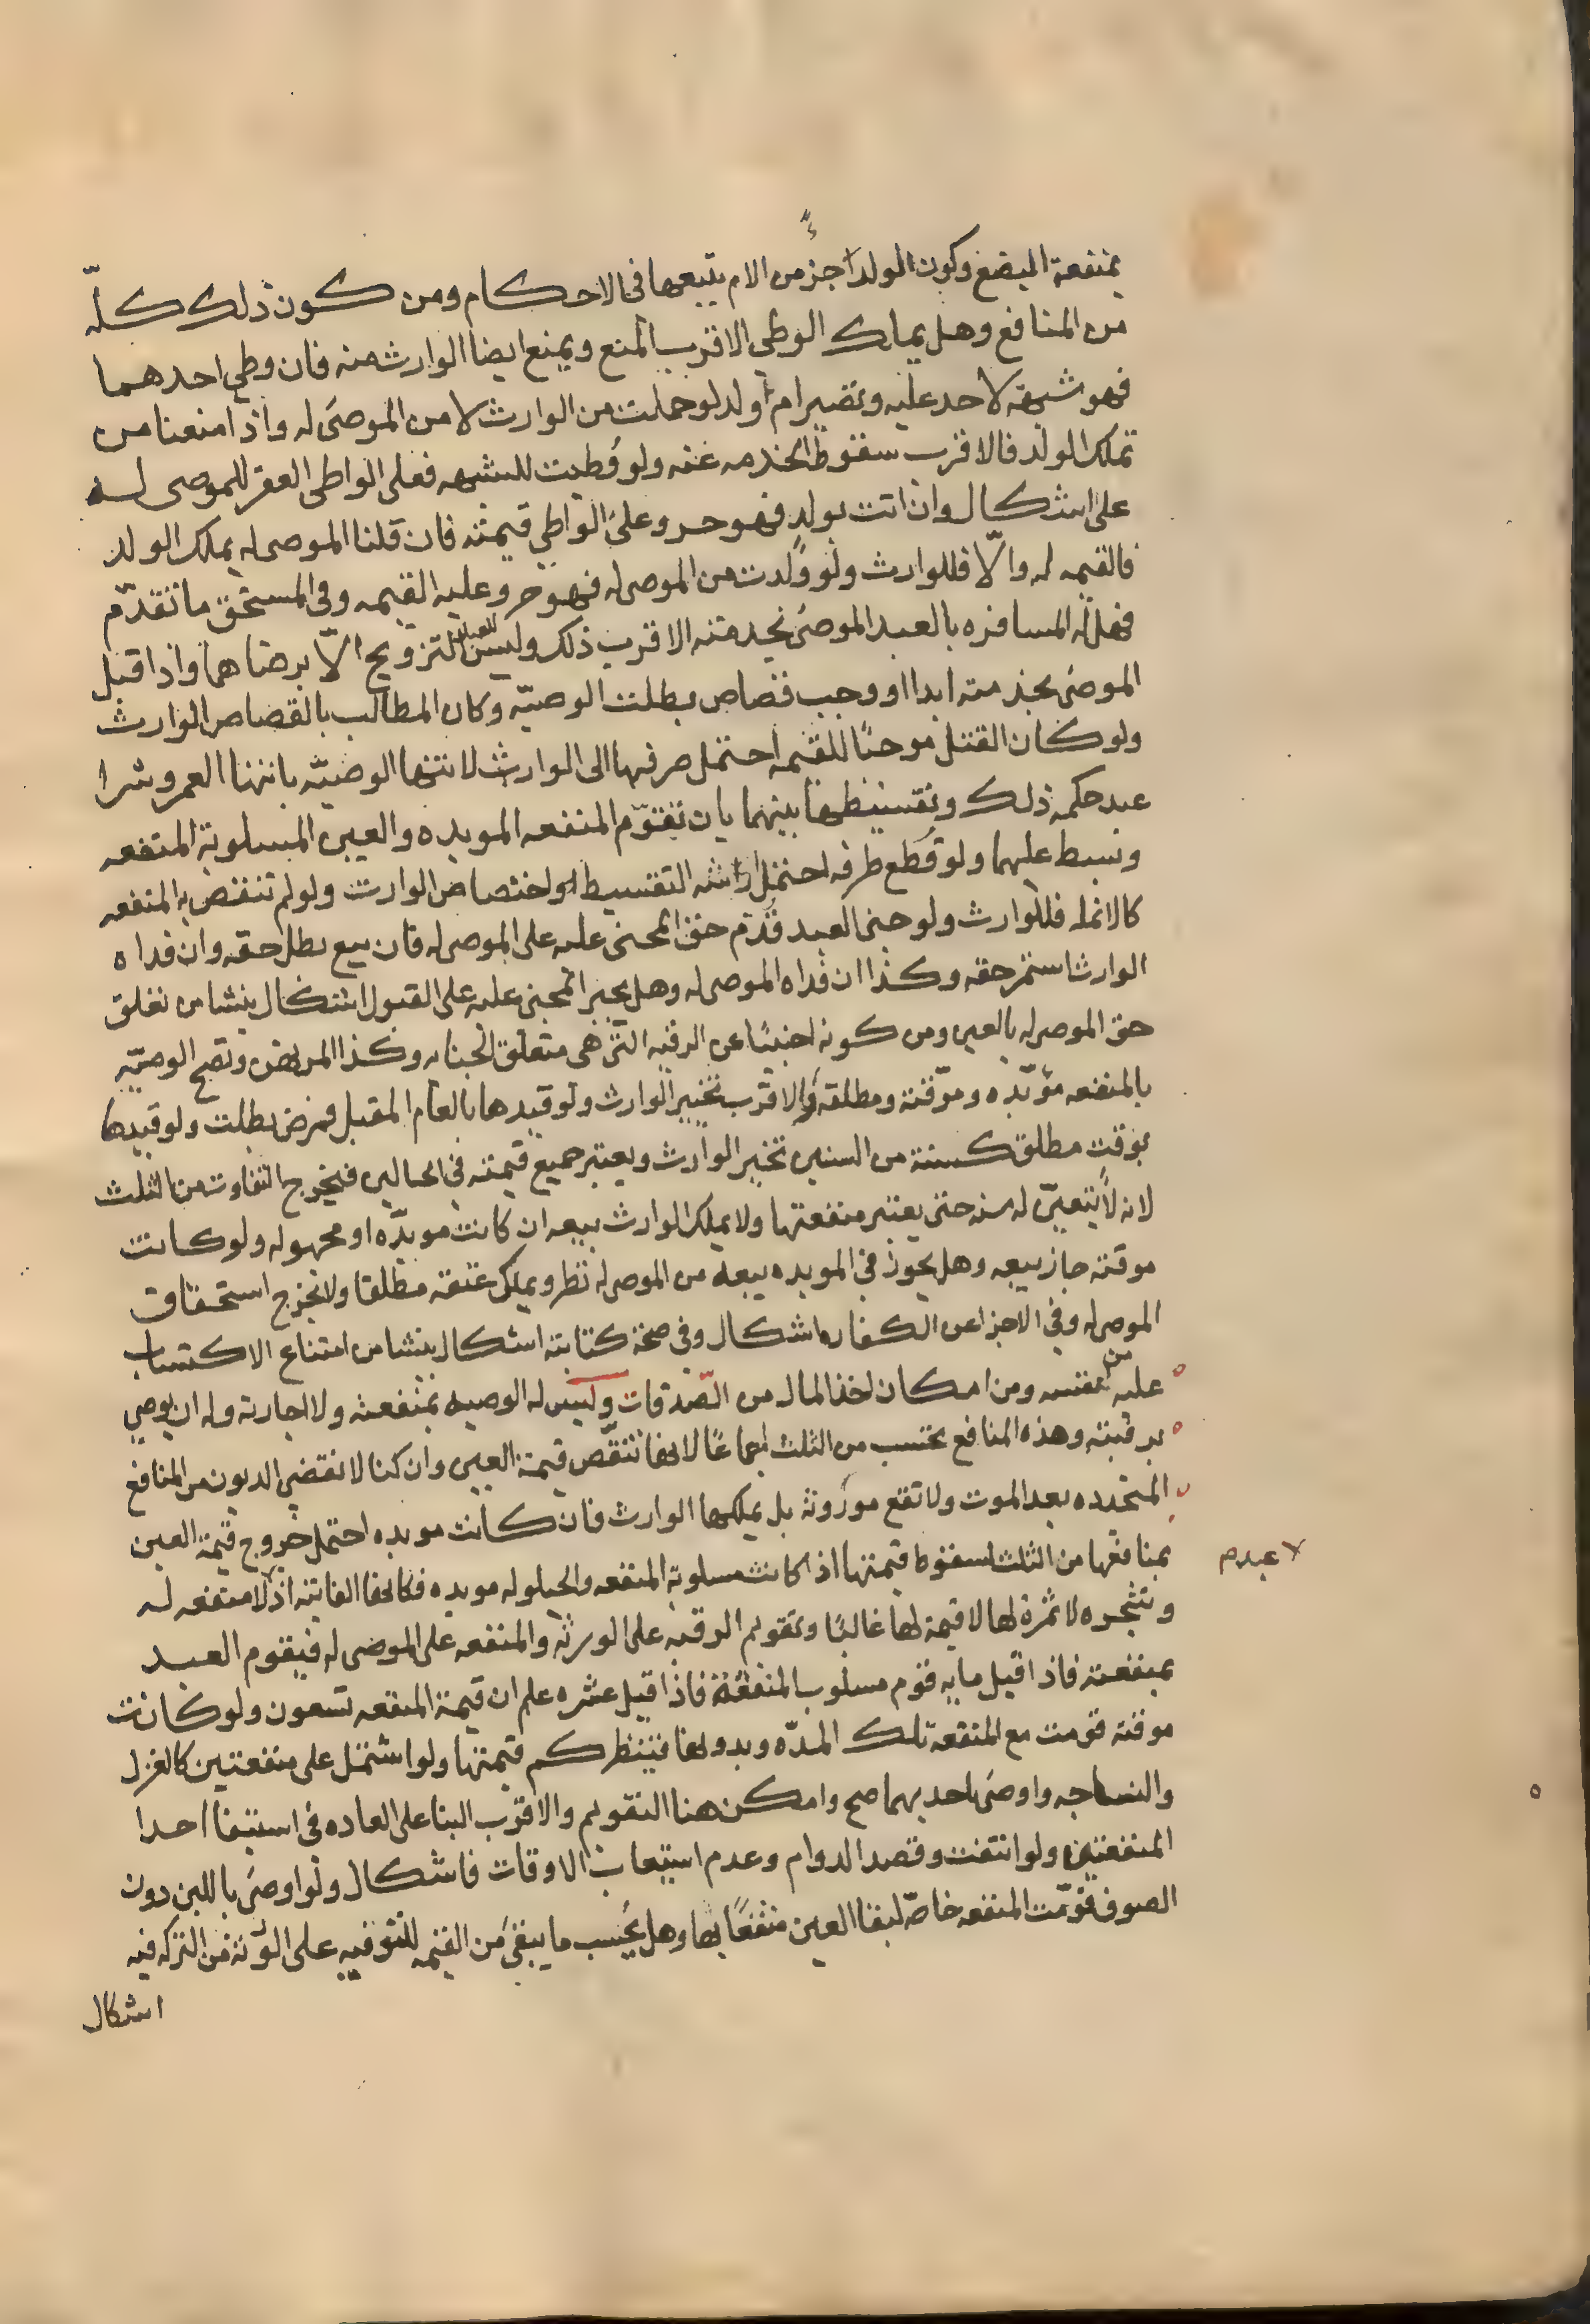 بمنفعة البضع وكون الولد جزء من الام يتبعها في الاحكام ومن كون ذلك كله
من المنافع وهل يملك الوطي الاقرب المنع ويمنع ايضا الوارث منه فان وطي احدهما
فهو شبهة لا حد عليه وتصير ام ولد لو حملت من الوارث لا من الموصى له واذا منعنا من
تملك الولد فالاقرب سقوط الخدمه عنه ولو وُطيت للشبهه فعلى الواطي العقر للموصى له
على اشكال وان اتت بولد فهو حر وعلى الواطي قيمته فان قلنا الموصى له يملك الولد
فالقيمه له والّا فللوارث ولو ولدت من الموصى له فهو حر وعليه القيمه وفي المستحق ما تقدّم
فهل له المسافره بالعبد الموصى بخدمته الاقرب ذلك وليس للعبد التزويج الّا برضاهما واذا قبل
الموصى بخدمته ابدا او وجب قصاص بطلت الوصيّه وكان المطالب بالقصاص الوارث
ولو كان القتل موجبًا للقيمه احتمل صرفها الى الوارث لانتها الوصيّه بانتها العمر وشرا
عبد حكمه ذلك وتقسيطها بينهما بان تقوّم المنفعه الموبده والعين المسلوبة المنفعه
وتبسط عليهما ولو قُطع طرفه احتمل ارشه التقسيط او اختصاص الوارث ولو لم تنقص به المنفعه
كالانمله فللوارث ولو جنى العبد قُدّم حق المجنى عليه على الموصى له فان بيع بطل حقه وان فداه
الوارث استمر حقه وكذا ان فداه الموصى له وهل يجبر المجنى عليه على القبول اشكال ينشا من تعلق
حق الموصى له بالعين ومن كونه اجنبيًا عن الرقبه التى هى متعلق الجنايه وكذا المرتهن وتصح الوصيّه
بالمنفعه مؤبّده وموّقتة ومطلقة والاقرب تخيير الوارث ولو قيدها بالعام المقبل فمرض بطلت ولو قيدها
بوقت مطلق كسنة من السنين تخير الوارث ويعتبر جميع قيمته في الحالين فيخرج التفاوت من الثلث
لانه لا يتعيّن له سنه حتى يعتبر منفعتها ولا يملك الوارث بيعه ان كانت موبدّه او مجهوله ولو كانت
موقته جاز بيعه وهل يجوز في الموبده بيعه من الموصى له نظر ويملك عتقه مطلقا ولا يخرج استحقاق
الموصى له وفي الاجزا عن الكفاره اشكال وفي صحة كتابته اشكال ينشا من امتناع الاكتساب
عليه من نفسه ومن امكان اخذ المال من الصّدقات وليس له الوصيه بمنفعته ولا اجارته وله ان يوصي
برقبته وهذه المنافع يحتسب من الثلث اجماعًا لانها تنقّص قيمة العين وان كنا لا نقضي الديون من المنافع
المتجدده بعد الموت ولا تقع موروثة بل يملكها الوارث فان كانت موبده احتمل خروج قيمة العين
بمنافعها من الثلث لسقوط قيمتها اذا كانت مسلوبة المنفعه والحيلوله موبده فكانها الفايتة اذ لا منفعه له
لا عبدم
وشجره لا ثمرة لها لا قيمة لها غالبًا وتقويم الرقبه على الورثة والمنفعه على الموصى له فيقوم العبد
بمنفعته فاذا قيل مايه قوم مسلوب المنفعة فاذا قيل عشره علم ان قيمة المنفعه تسعون ولو كانت
موقته قومت مع المنفعة تلك المدّه وبدونها فينظر كم قيمتها ولو اشتمل على منفعتين كالغزل
والنساجه واوصى باحديهما صح وامكن هنا التقويم والاقرب البنا على العاده في استيفا احدا
المنفعتين ولو انتفت وقصد الدوام وعدم استيعاب الاوقات فاشكال ولو اوصى باللبن دون
الصوف قوّمت المنفعه خاصّة لبقا العين منتفعًا بها وهل يُحسب ما يبقى من القيمه للتوفيه على الورثة من التركه فيه
اشكال